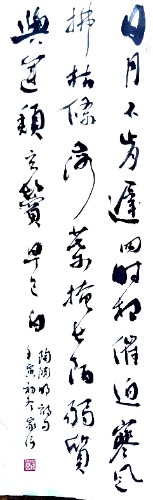 日月不肯遲四時相催迫寒風
拂枯條落葉掩長陌弱質
與運頹玄鬢早已白
陶淵明詩句